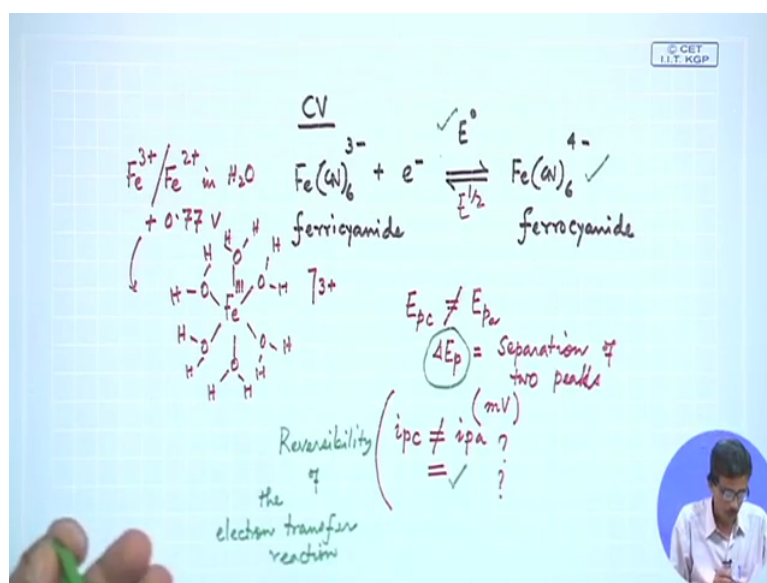 © CET
I.I.T. KGP
CV
Fe³⁺/Fe²⁺ in H₂O
+ 0.77 V
Fe(CN)₆³⁻ + e⁻ ⇌ Fe(CN)₆⁴⁻ ✓
✓ E°
E^1/2
ferricyanide
ferrocyanide
H H H
H O H
H-O III O-H ]3+
Fe
H-O O-H
H O H
H H
Epc ≠ Epa
ΔEp = Separation of
two peaks
(mV)
ipc ≠ ipa ?
= ✓ ?
Reversibility
of
the
electron transfer
reaction